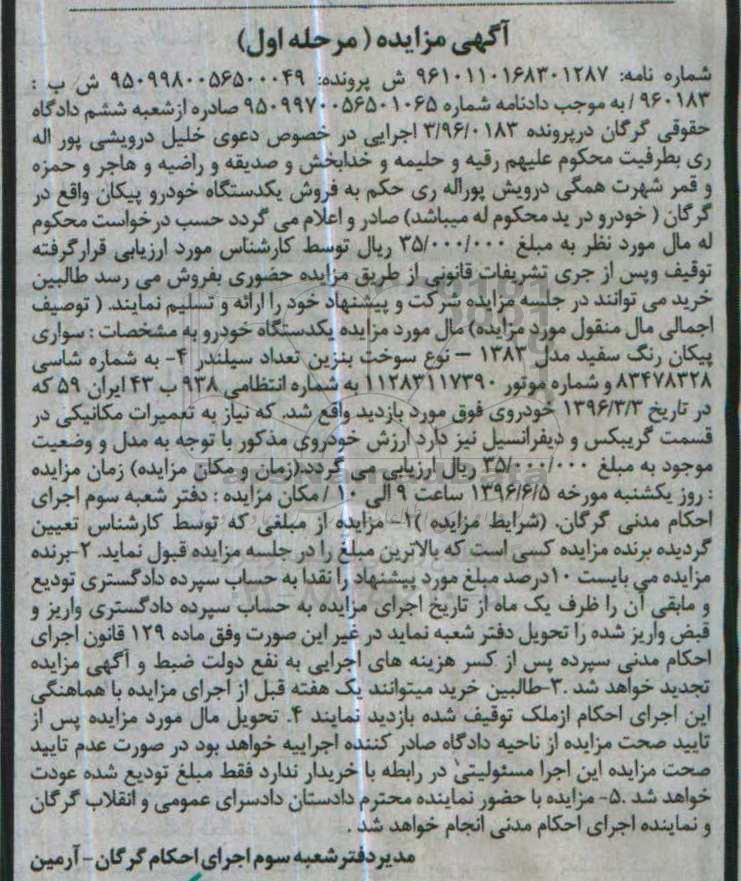 آگهی مزایده ( مرحله اول)
شماره نامه: ۹۶۱۰۱۱۰۱۶۸۳۰۱۲۸۷ ش پرونده: ۹۵۰۹۹۸۰۰۵۶۵۰۰۰۴۹ ش ب :
۹۶۰۱۸۳ / به موجب دادنامه شماره ۹۵۰۹۹۷۰۰۵۶۵۰۱۰۶۵ صادره ازشعبه ششم دادگاه
حقوقی گرگان درپرونده ۳/۹۶/۰۱۸۳ اجرایی در خصوص دعوی خلیل درویشی پور اله
ری بطرفیت محکوم علیهم رقیه و حلیمه و خدابخش و صدیقه و راضیه و هاجر و حمزه
و قمر شهرت همگی درویش پوراله ری حکم به فروش یکدستگاه خودرو پیکان واقع در
گرگان ( خودرو در ید محکوم له میباشد) صادر و اعلام می گردد حسب درخواست محکوم
له مال مورد نظر به مبلغ ۳۵/۰۰۰/۰۰۰ ریال توسط کارشناس مورد ارزیابی قرارگرفته
توقیف وپس از جری تشریفات قانونی از طریق مزایده حضوری بفروش می رسد طالبین
خرید می توانند در جلسه مزایده شرکت و پیشنهاد خود را ارائه و تسلیم نمایند. ( توصیف
اجمالی مال منقول مورد مزایده) مال مورد مزایده یکدستگاه خودرو به مشخصات : سواری
پیکان رنگ سفید مدل ۱۳۸۳ – نوع سوخت بنزین تعداد سیلندر ۴- به شماره شاسی
۸۳۴۷۸۳۲۸ و شماره موتور ۱۱۲۸۳۱۱۷۳۹۰ به شماره انتظامی ۹۳۸ ب ۴۳ ایران ۵۹ که
در تاریخ ۱۳۹۶/۳/۳ خودروی فوق مورد بازدید واقع شد. که نیاز به تعمیرات مکانیکی در
قسمت گریبکس و دیفرانسیل نیز دارد ارزش خودروی مذکور با توجه به مدل و وضعیت
موجود به مبلغ ۳۵/۰۰۰/۰۰۰ ریال ارزیابی می گردد.(زمان و مکان مزایده) زمان مزایده
: روز یکشنبه مورخه ۱۳۹۶/۶/۵ ساعت ۹ الی ۱۰ / مکان مزایده : دفتر شعبه سوم اجرای
احکام مدنی گرگان. (شرایط مزایده )۱- مزایده از مبلغی که توسط کارشناس تعیین
گردیده برنده مزایده کسی است که بالاترین مبلغ را در جلسه مزایده قبول نماید. ۲-برنده
مزایده می بایست ۱۰درصد مبلغ مورد پیشنهاد را نقدا به حساب سپرده دادگستری تودیع
و مابقی آن را ظرف یک ماه از تاریخ اجرای مزایده به حساب سپرده دادگستری واریز و
قبض واریز شده را تحویل دفتر شعبه نماید در غیر این صورت وفق ماده ۱۲۹ قانون اجرای
احکام مدنی سپرده پس از کسر هزینه های اجرایی به نفع دولت ضبط و آگهی مزایده
تجدید خواهد شد .۳-طالبین خرید میتوانند یک هفته قبل از اجرای مزایده با هماهنگی
این اجرای احکام ازملک توقیف شده بازدید نمایند ۴. تحویل مال مورد مزایده پس از
تایید صحت مزایده از ناحیه دادگاه صادر کننده اجراییه خواهد بود در صورت عدم تایید
صحت مزایده این اجرا مسئولیتی در رابطه با خریدار ندارد فقط مبلغ تودیع شده عودت
خواهد شد .۵- مزایده با حضور نماینده محترم دادستان دادسرای عمومی و انقلاب گرگان
و نماینده اجرای احکام مدنی انجام خواهد شد .
مدیردفترشعبه سوم اجرای احکام گرگان- آرمین